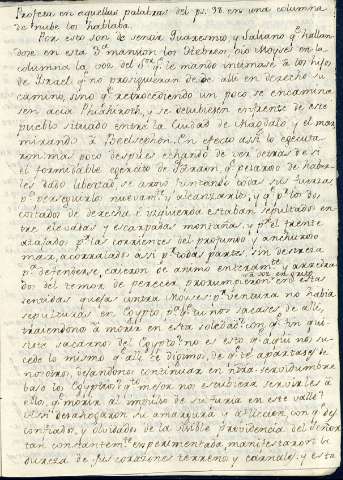 Profeta en aquellas palabras del ps. 98. en una columna
de nube los hablaba.
Por esto son de sentir Juaresmio, y Saliano qe. hallan
dose en esta 3ra. mansion los Hebreos, oio Moyses en la
columna la voz del Sor. qe. le mando intimase a los hijos
de Israel qe. no prosiguieran desde alli en derecho su
camino, sino qe. retrocediendo un poco se encamina
sen acia Phiahiroth, y se detubiesen enfrente de este
pueblo situado entre la Ciudad de Magdalo y el mar,
mirando a Beelsephon. En efecto assi lo egecuta
ron mas poco despues echando de ver detras de si
el formidable egercito de Faraon, qe. pesaroso de haber
les dado libertad, se armo juntando todas sus fuerzas
pa. perseguirlo nuevamte. y alcanzarlo, y qe. pr. los dos
costados de derecha e izquierda estaban sepultados en
tre elevadas y escarpadas montañas, y pr. el frente
atajados pr. las corrientes del profundo y anchuroso
mar, acorralados assi pr. todas partes, sin destreza
pa. defenderse, caieron de animo enteramte. y arredra
dos del temor de perecer, prorrumpieron en estas
sentidas quejas contra Moyses: pr. ventura no habia
sepulturas en Egypto, pa. qe. tu nos sacases de alli,
trayendonos a morir en esta soledad? con qe. fin qui
siste sacarnos del Egypto? no es esto qe. aqui nos su
cede lo mismo qe. alli te digimos, de qe. te apartases de
nosotros, dejandonos continuar en nra. servidumbre
bajo los Egypcios? qto. mejor no estubiera servirles a
ellos, qe. morir al impulso de su furia en este valle?
Assi desahogaron su amargura y afliccion, con qe. des
confiados, y olvidados de la visible Providencia del Señor
tan constantemte. experimentada, manifestaron la
dureza de sus corazones terreno y carnales: y esta